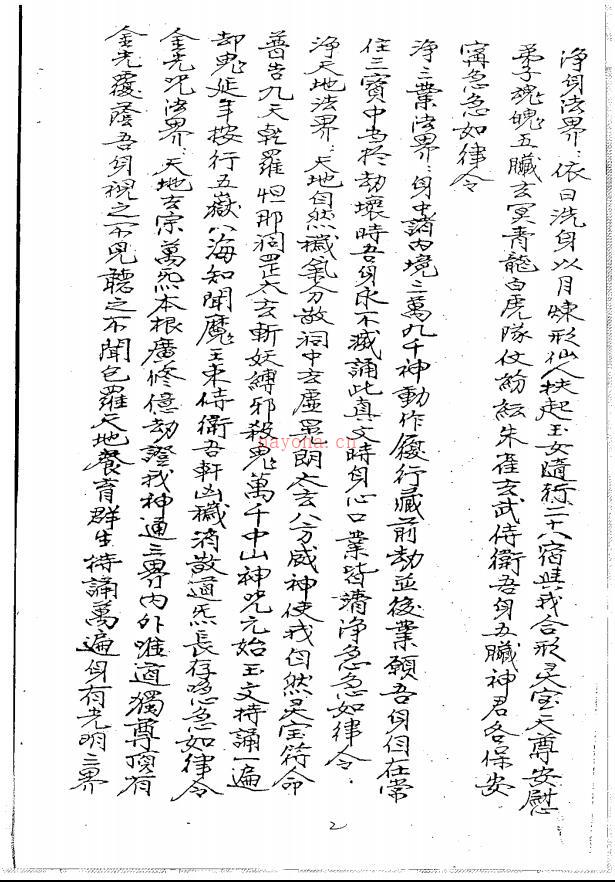 净身法界:依日洗身以月煉形仙人扶起玉女隨行二十八宿與我合形灵宝天尊安慰
弟子魂魄五臟玄冥青龍白虎隊仗紛紜朱雀玄武侍衛吾身五臟神君各保安
寕急急如律令
净三業法界:身中諸内境三萬九千神動作履行藏前劫並後業願吾身自在常
住三寶中当於劫壞時吾身永不滅誦此真文時身心口業皆清净急急如律令.
净天地法界:天地自然穢氣分散洞中玄虛晃朗太玄八方威神使我自然灵宝符命
普告九天乾羅怛那洞罡太玄斬妖縛邪殺鬼萬千中山神咒元始玉文持誦一遍
却鬼延年按行五嶽八海知聞魔王束侍衛吾軒凶穢消散道炁長存急急如律令
金光咒法界:天地玄宗萬炁本根廣修億劫證我神通三界内外唯道獨尊頂有
金光覆蔭吾身視之不見聽之不聞包羅天地養育群生持誦萬遍身有光明三界
2
nayona.cn